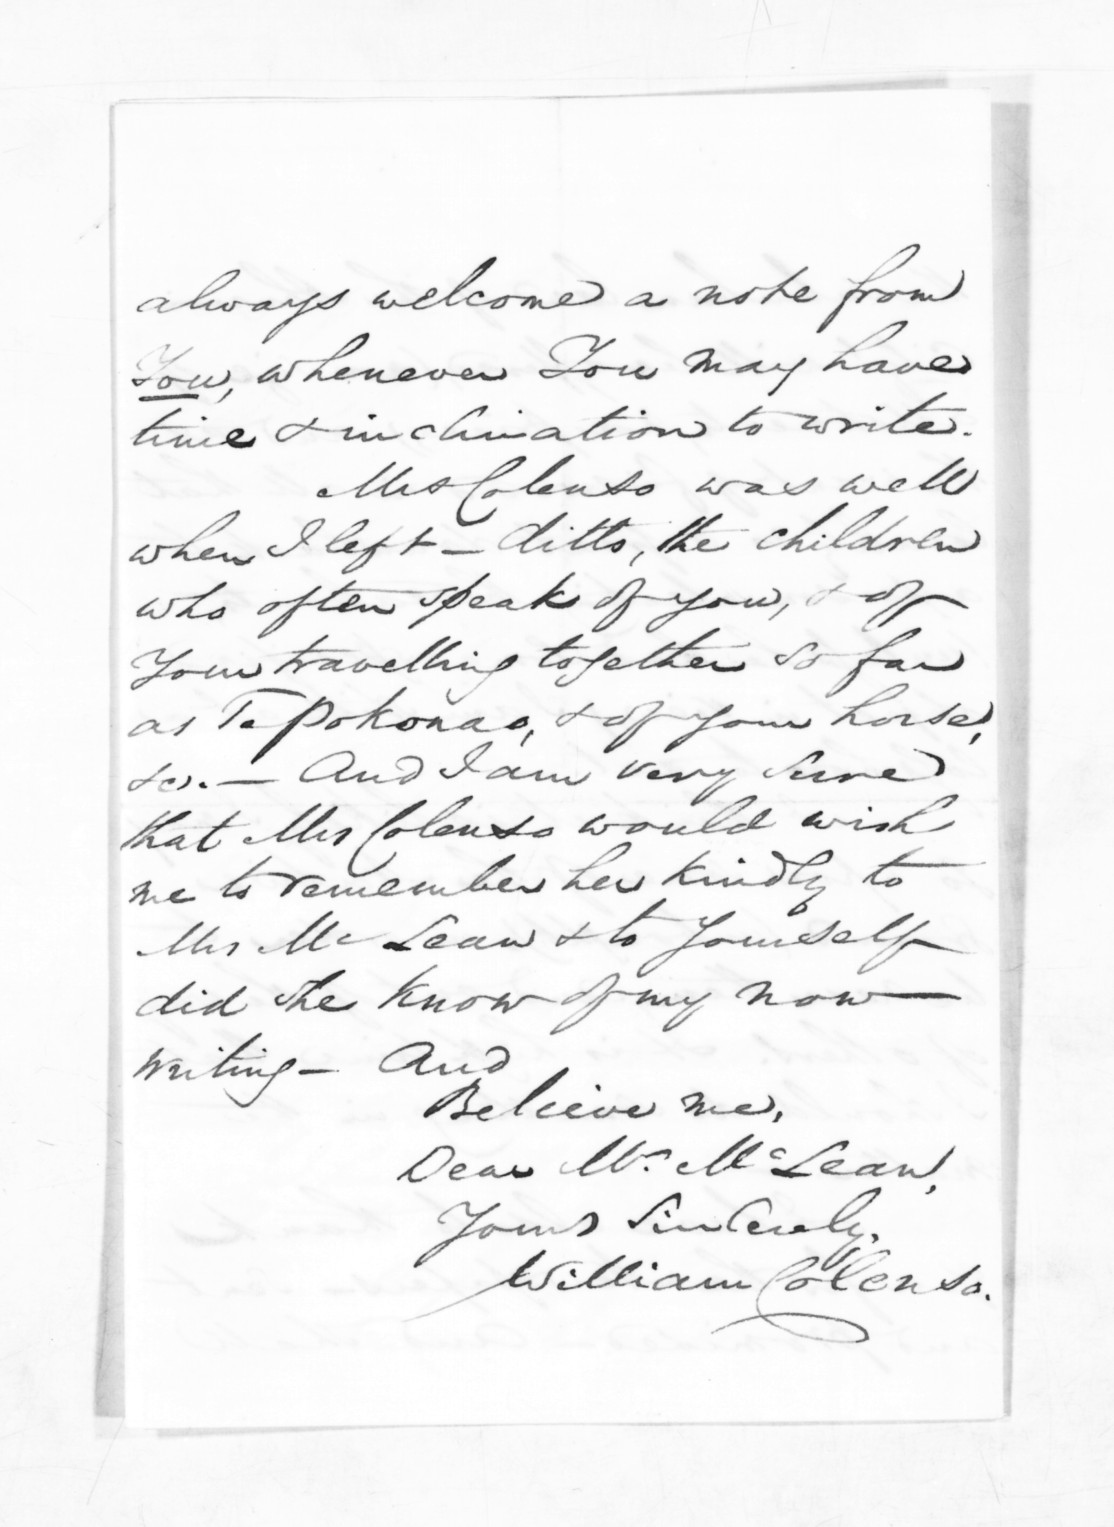 always welcome a note from
You, whenever You may have
time & inclination to write.
Mrs Colenso was well
when I left — ditto, the children
who often speak of you, & of
Your travelling together so far
as Te Pokonao, & of your horse,
&c. — And I am very sure
that Mrs Colenso would wish
me to remember her kindly to
Mrs Mc Lean & to Yourself
did she know of my now —
writing — And
Believe me,
Dear Mr. McLean,
Yours Sincerely,
William Colenso.